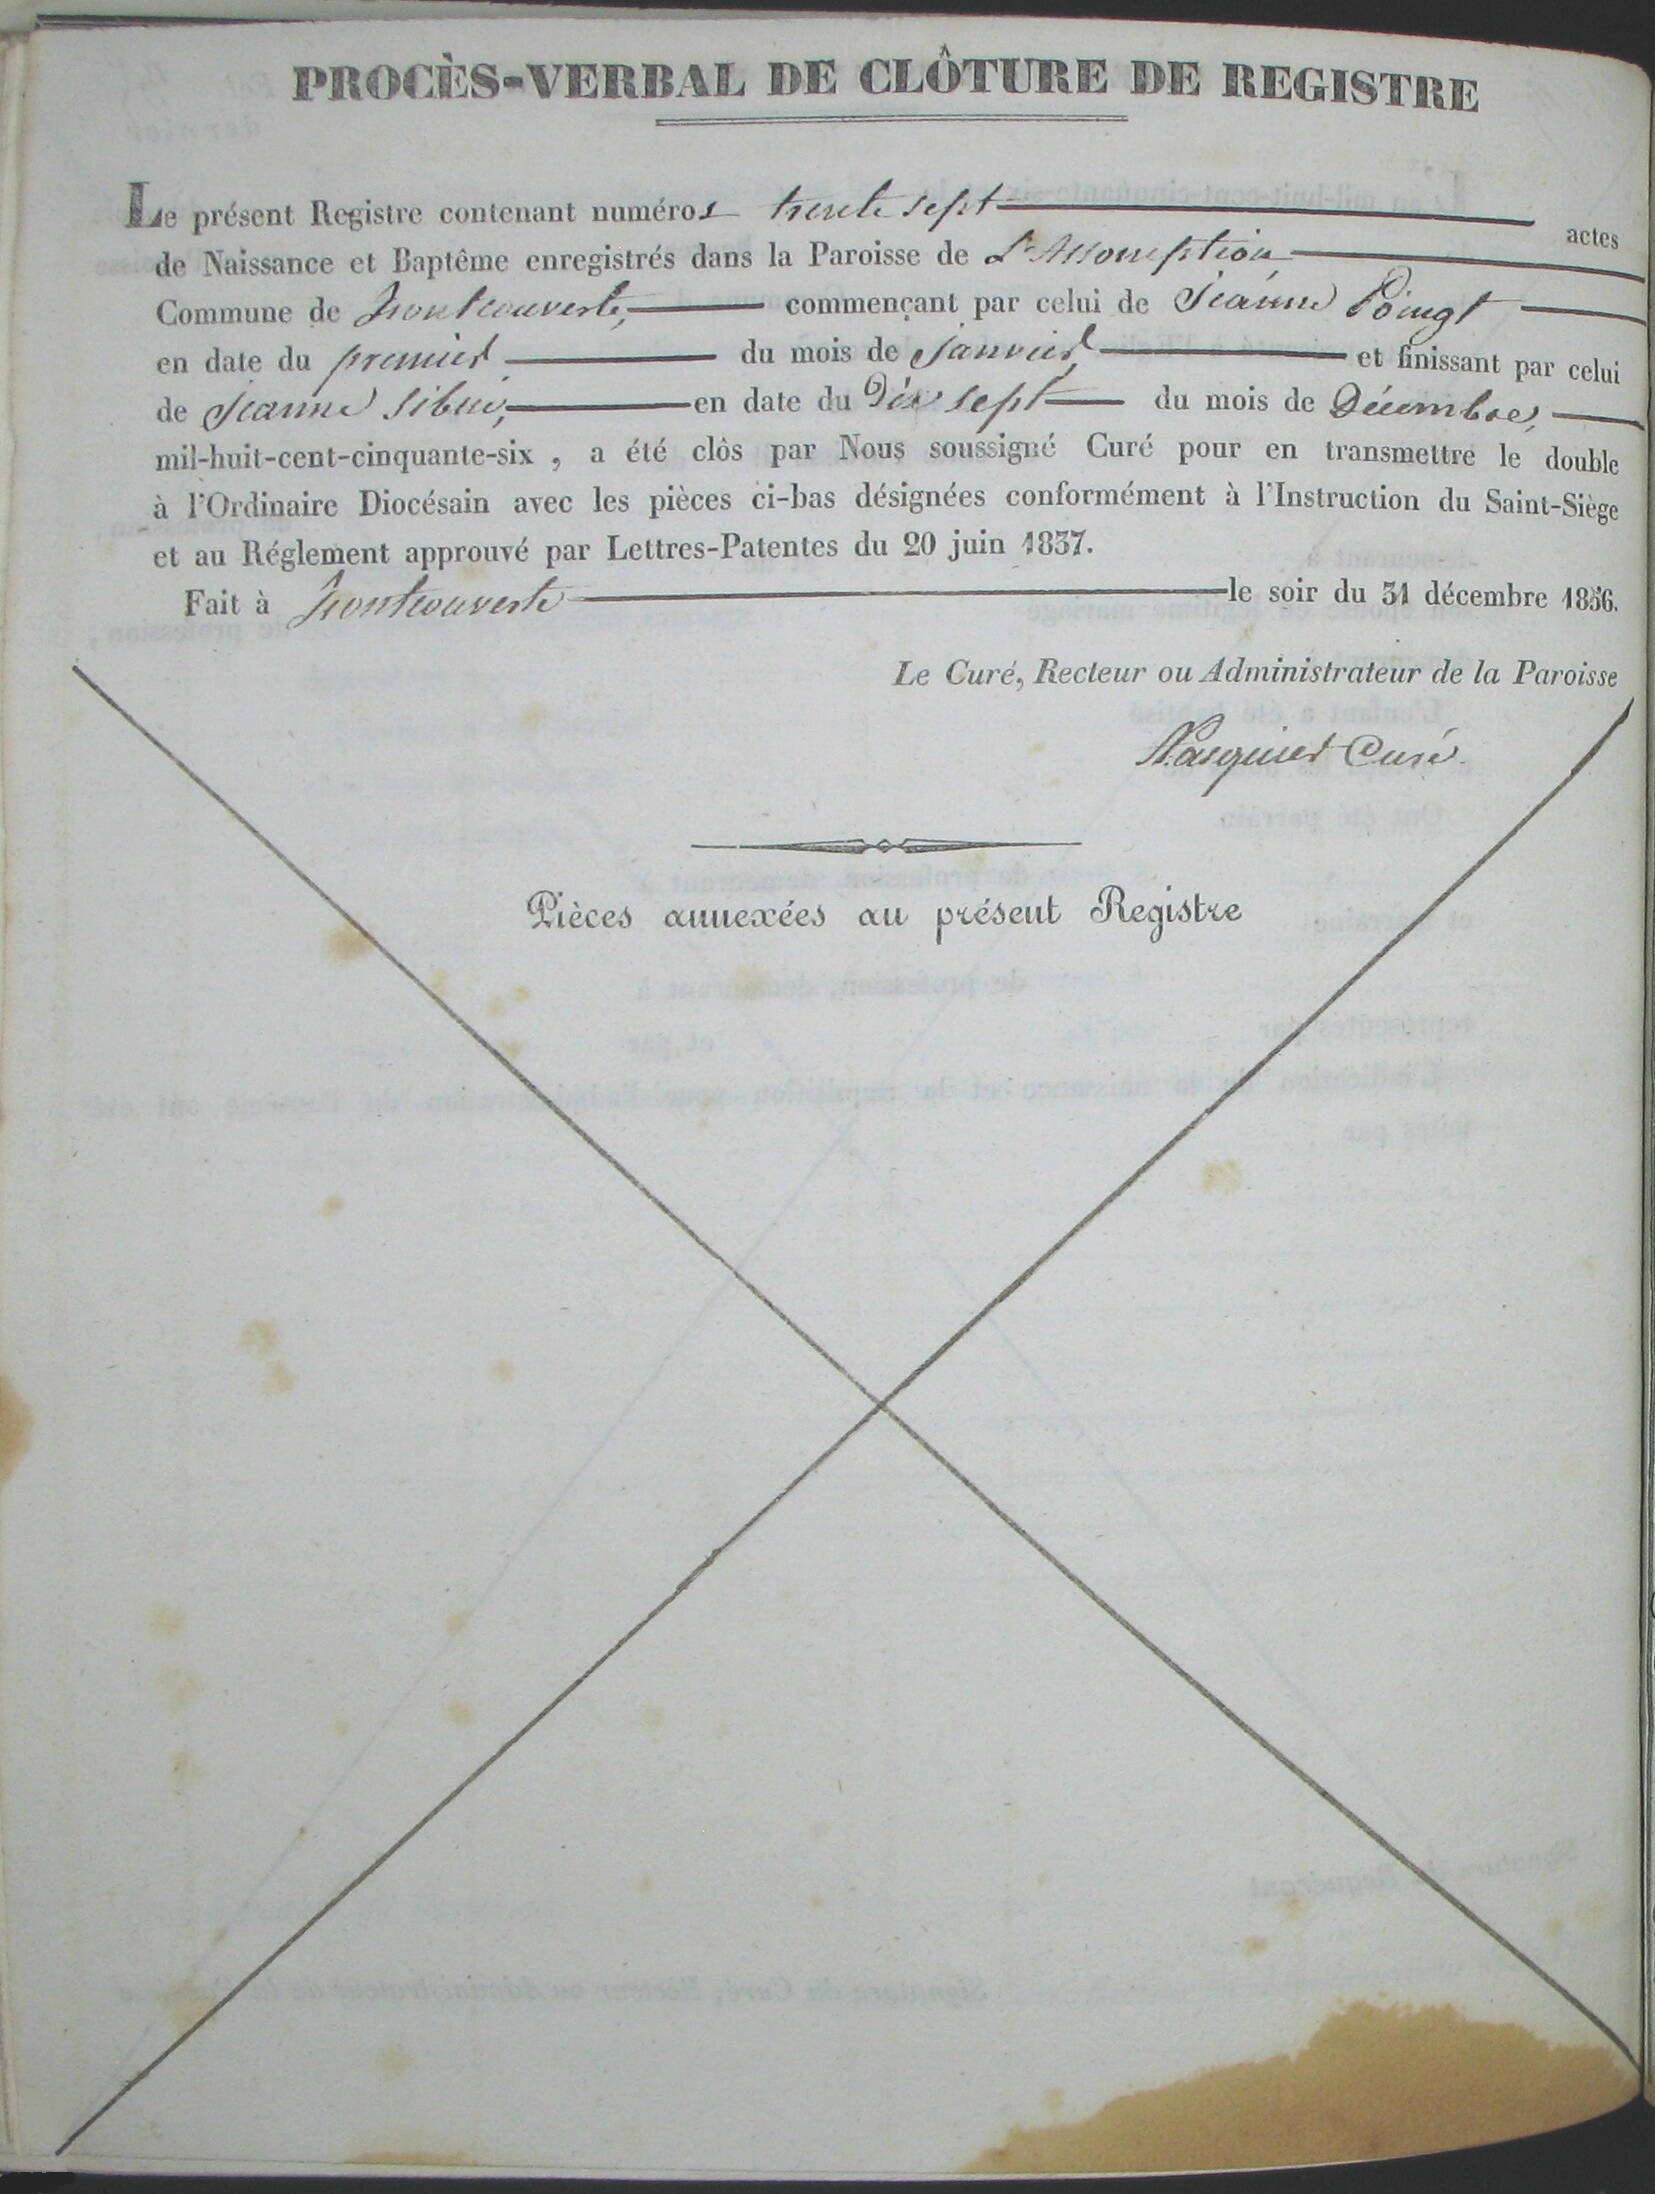 PROCÈS-VERBAL DE CLÔTURE DE REGISTRE
Le présent Registre contenant numéros trente sept actes
de Naissance et Baptême enregistrés dans la Paroisse de L'Assomption
Commune de Fontcouverte, commençant par celui de Jeanne
en date du premier du mois de Janvier et finissant par celui
de Jeanne Sibué, en date du Dix sept du mois de Décembre,
mil-huit-cent-cinquante-six , a été clôs par Nous soussigné Curé pour en transmettre le double
à l'Ordinaire Diocésain avec les pièces ci-bas désignées conformément à l'Instruction du Saint-Siège
et au Réglement approuvé par Lettres-Patentes du 20 juin 1837.
Fait à Fontcouverte le soir du 31 décembre 1856.
Le Curé, Recteur ou Administrateur de la Paroisse
Pasquier Curé.
Pièces annexées au présent Registre